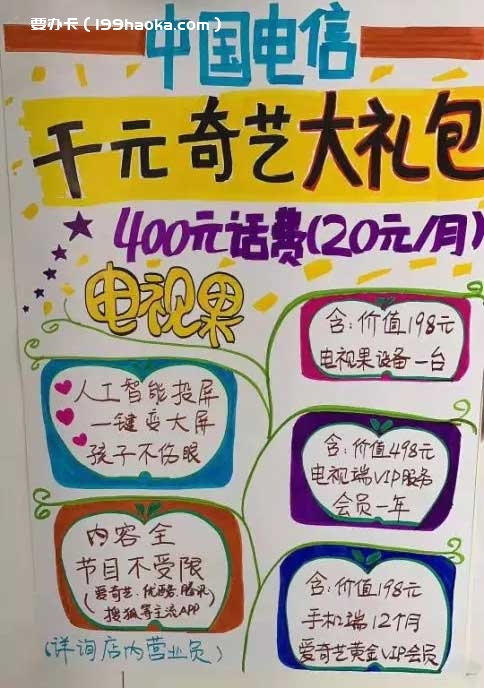 要办卡（199haoka.com）
中国电信
千元奇艺大礼包
400元话费(20元/月)
电视果
含:价值198元
电视果设备一台
人工智能投屏
一键变大屏
孩子不伤眼
含:价值498元
电视端VIP服务
会员一年
内容全
节目不受限
(爱奇艺.优酷.腾讯
搜狐等主流APP)
含:价值198元
手机端12个月
爱奇艺黄金VIP会员
(详询店内营业员)